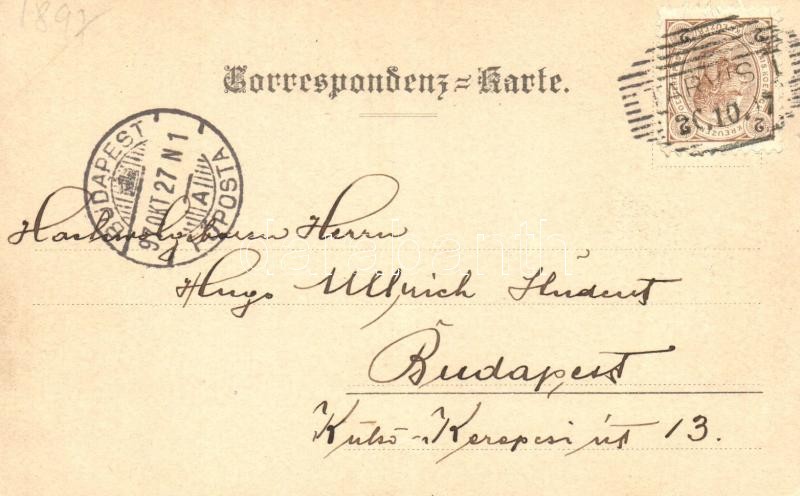 1897
Correspondenz=Karte.
BUDAPEST
97 OKT 27 N 1
FŐPOSTA
A
4
2 2
KREUZER
RVIS
26.10.
Hochwohlgeboren Herrn
Hugo Ullrich Student
Budapest
Külső-Kerepesi út 13.
darabanth